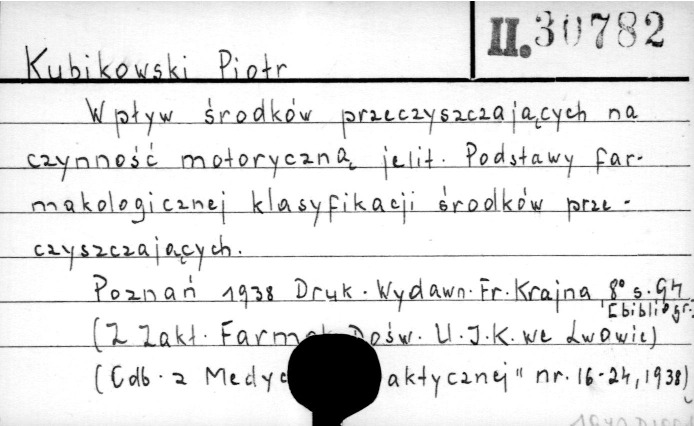 II. 30782
Kubikowski Piotr
Wpływ środków przeczyszczających na
czynność motoryczną jelit. Podstawy far-
makologicznej klasyfikacji środków prze-
czyszczających.
Poznań 1938 Druk. Wydawn. Fr. Krajna 8° s. 94
[bibliogr.]
(Z Zakł. Dośw. U.J.K. we Lwowie)
(Odb. z nr. 16-24, 1938)